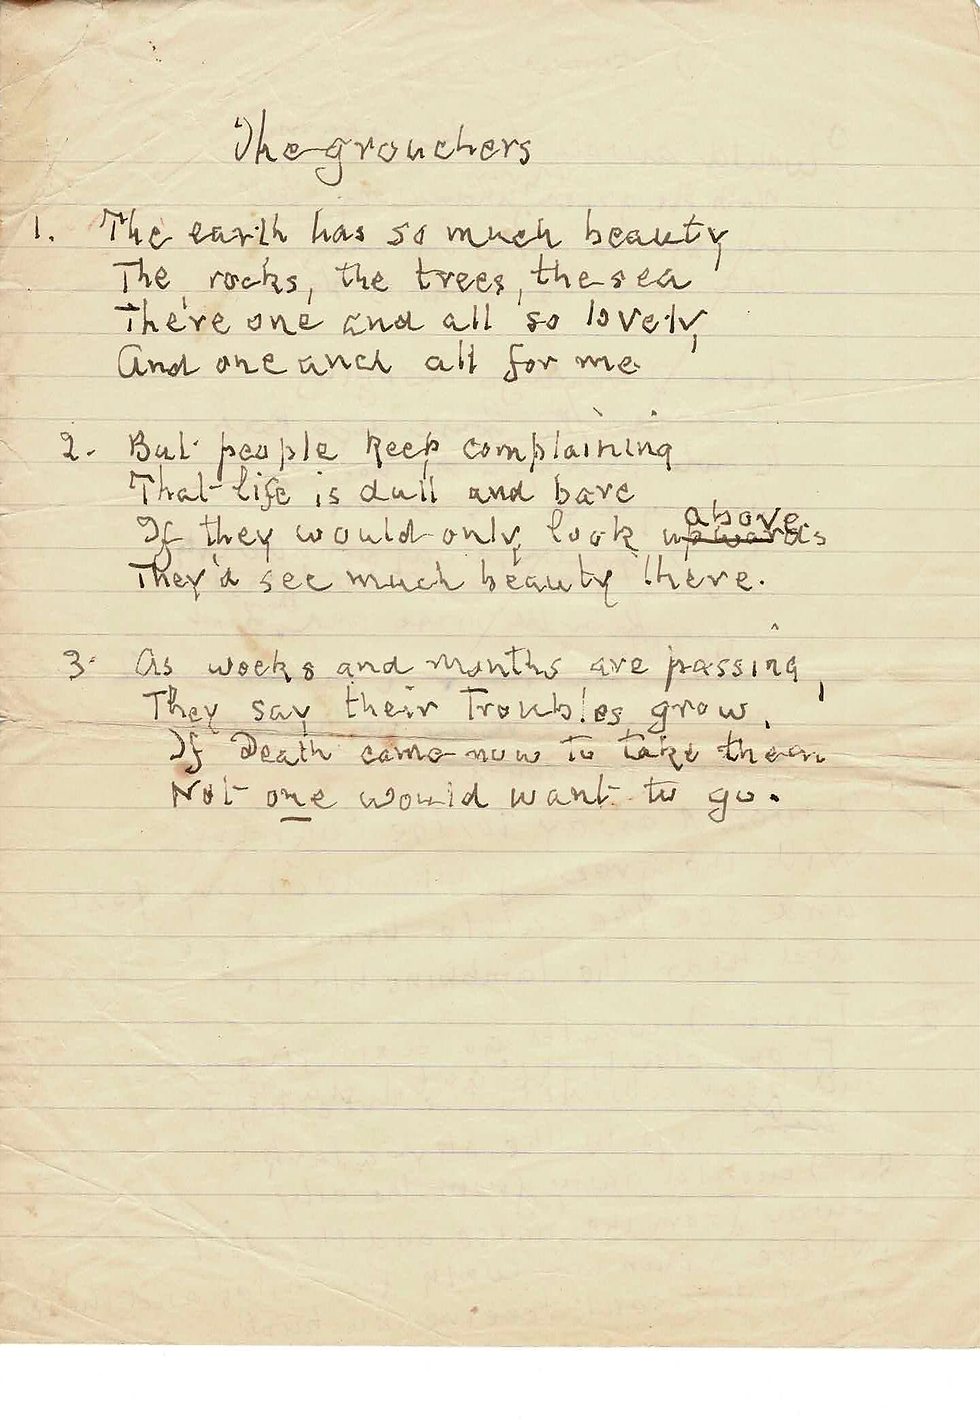 The grouchers
1. The earth has so much beauty
The rocks, the trees, the sea
They're one and all so lovely,
And one and all for me
2. But people keep complaining
That life is dull and bare
If they would only look upwards above
They'd see much beauty there.
3. As weeks and months are passing,
They say their Troubles grow,
If Death came now to take them
Not one would want to go.